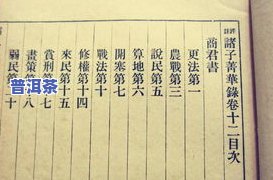 諸子菁華錄卷十二目次
商君書
更法第一
農戰第三
說民第五
算地第六
開塞第七
戰法第十
修權第十四
來民第十五
賞刑第十七
畫策第十八
弱民第二十
普洱茶